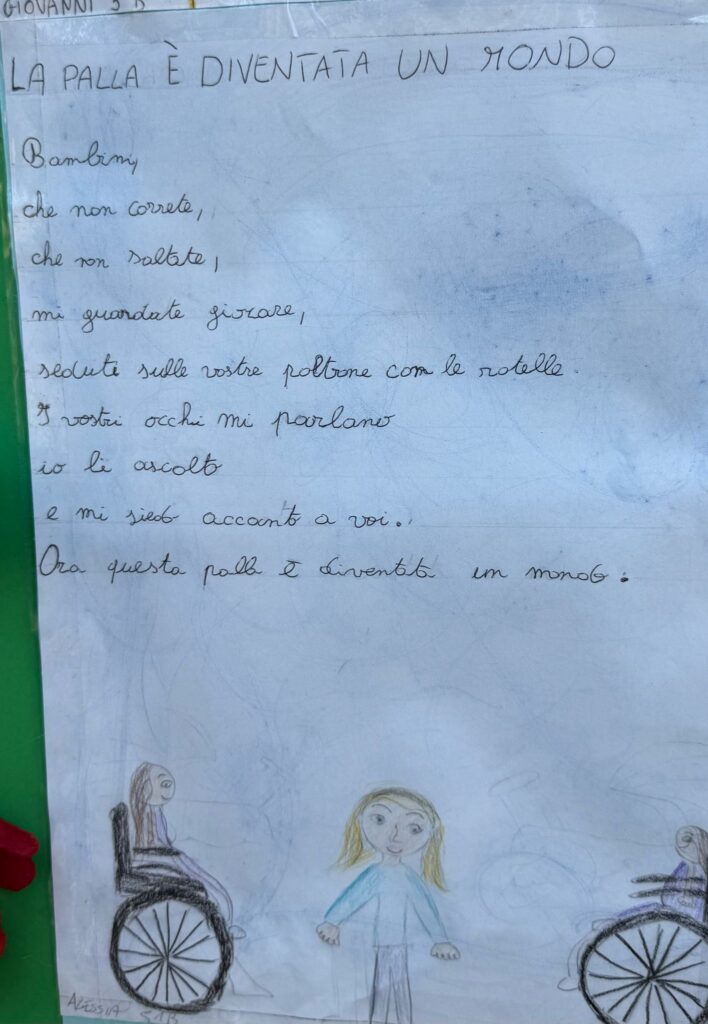 GIOVANNI 5 B
LA PALLA È DIVENTATA UN MONDO
Bambini,
che non correte,
che non saltate,
mi guardate giocare,
seduti sulle vostre poltrone com le rotelle.
I vostri occhi mi parlano
io li ascolto
e mi siedo accanto a voi.
Ora questa palla è diventata um mondo.
ALESSIA 5^B